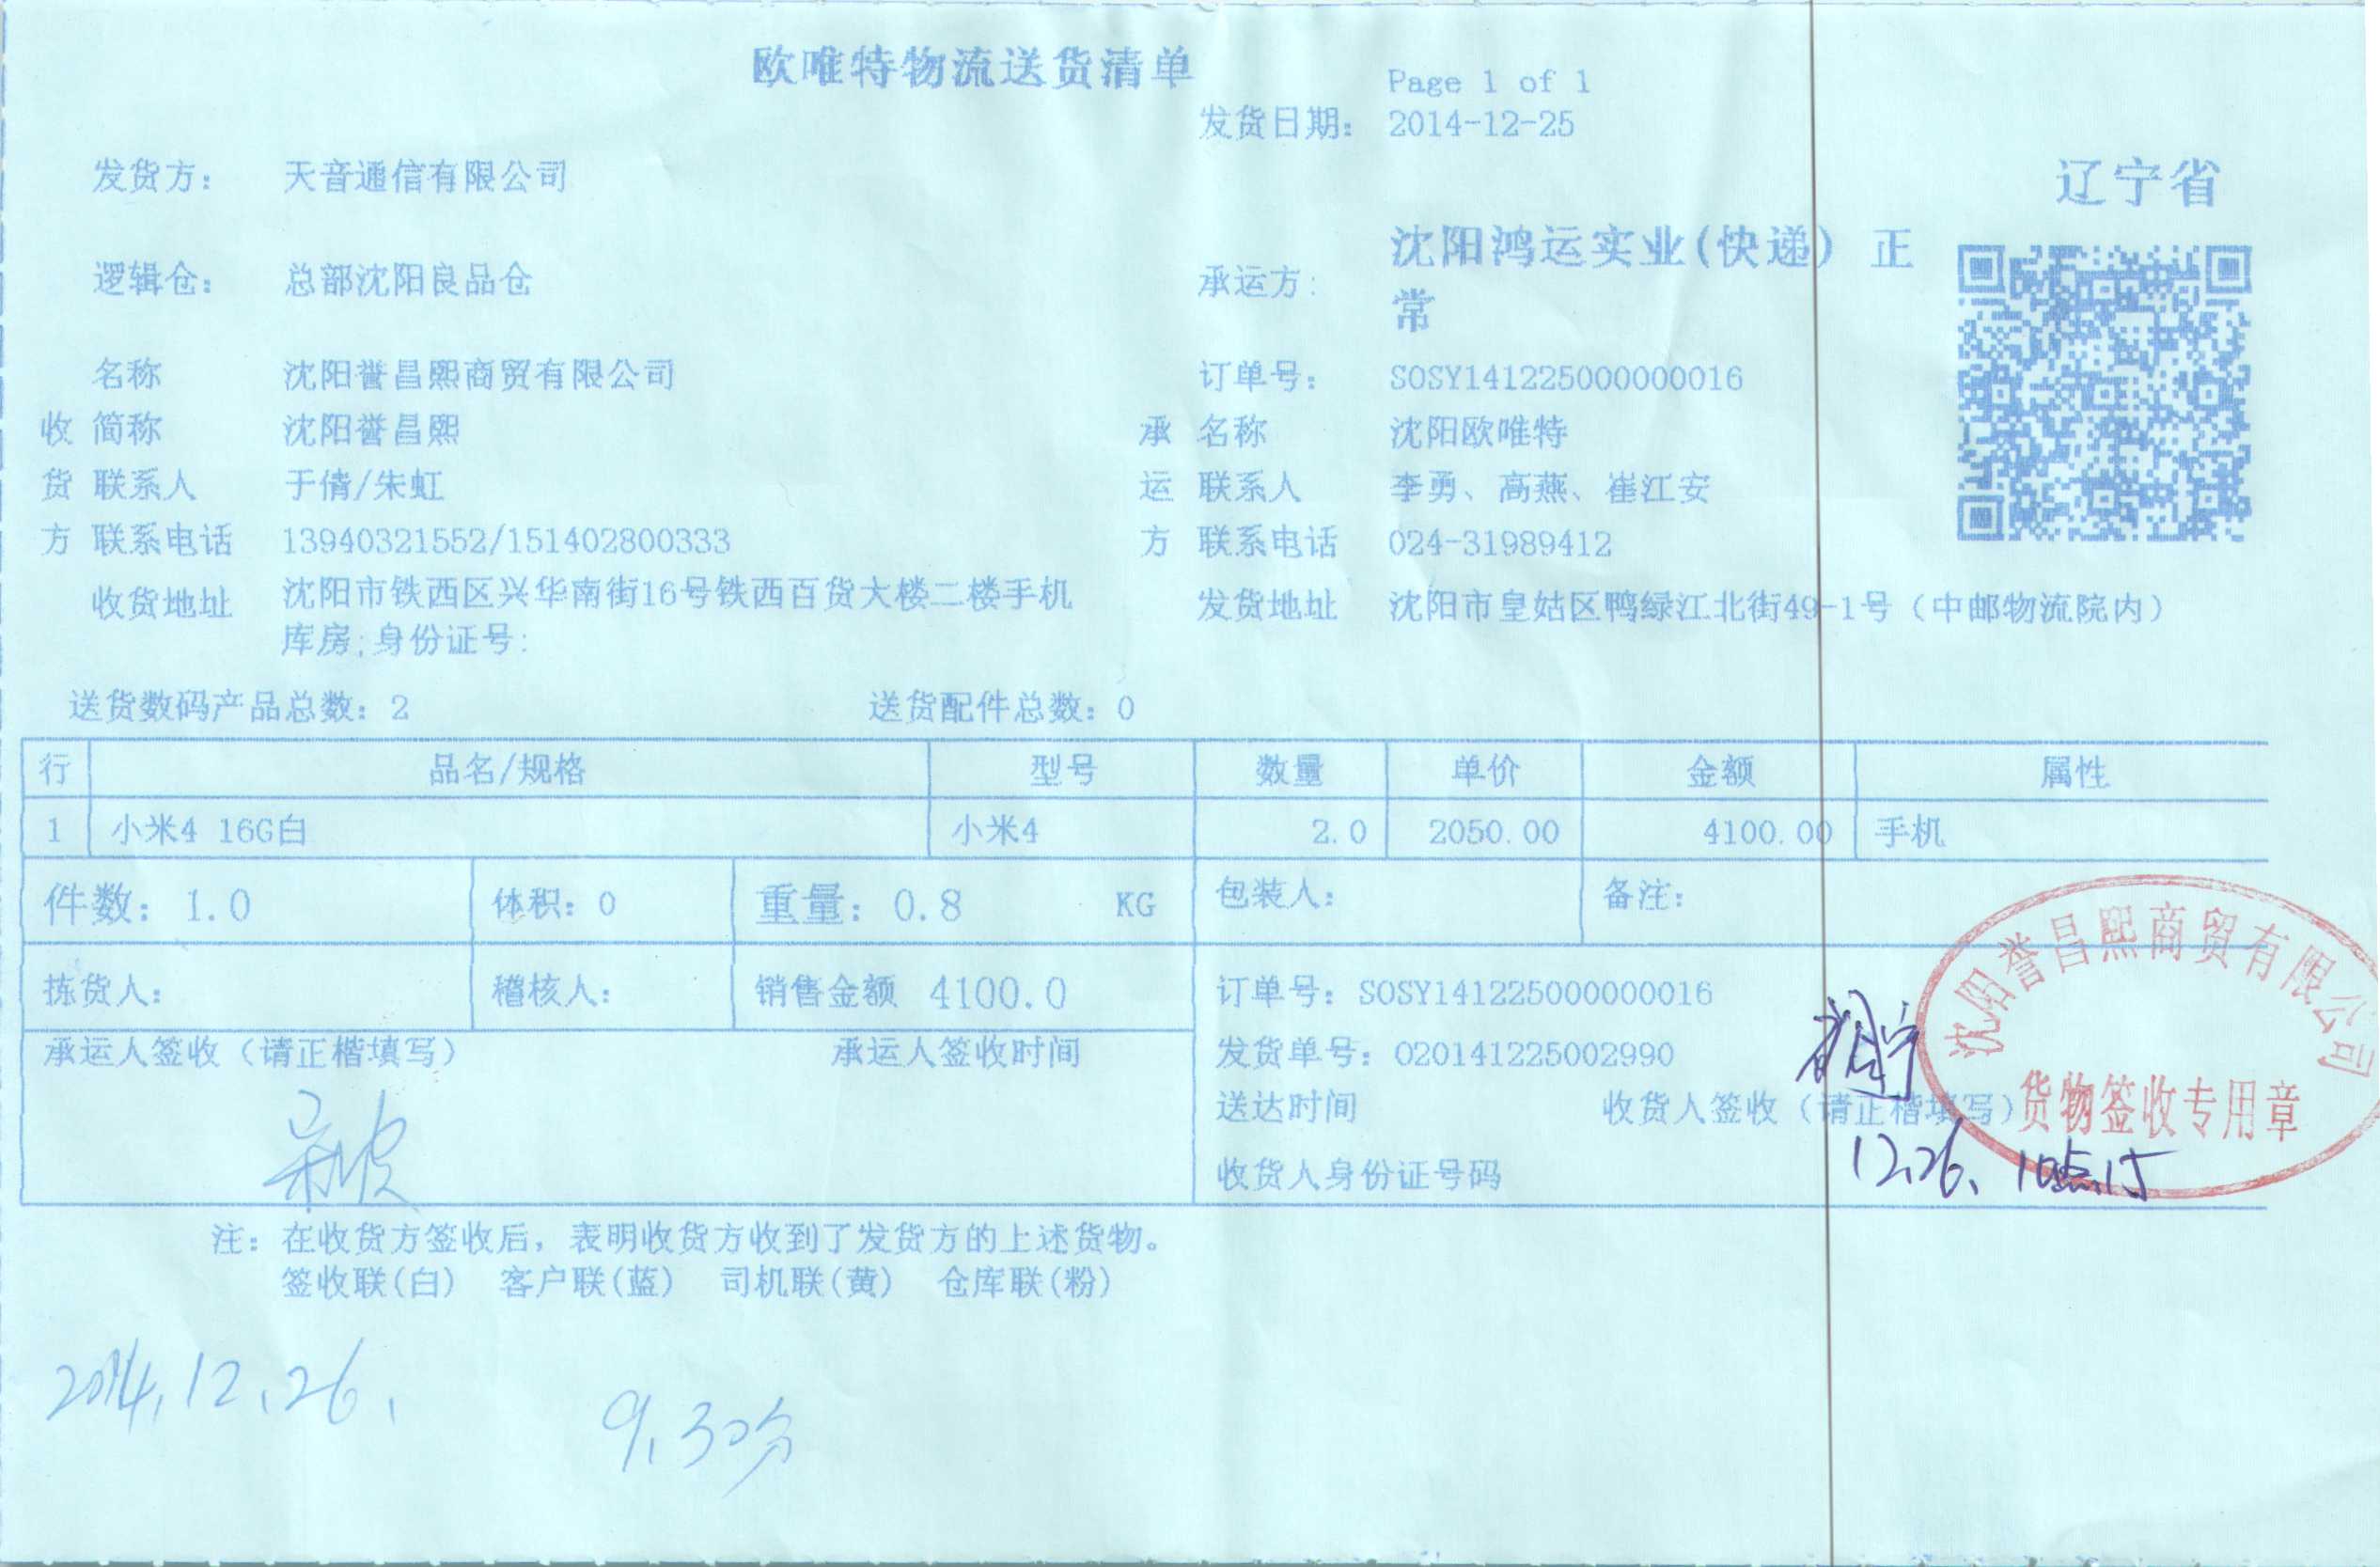 欧唯特物流送货清单
Page 1 of 1
发货日期： 2014-12-25
发货方： 天音通信有限公司
辽宁省
逻辑仓： 总部沈阳良品仓
承运方： 沈阳鸿运实业(快递) 正
常
名称 沈阳誉昌熙商贸有限公司
订单号： SOSY141225000000016
收 简称 沈阳誉昌熙
承 名称 沈阳欧唯特
货 联系人 于倩/朱虹
运 联系人 李勇、高燕、崔江安
方 联系电话 13940321552/151402800333
方 联系电话 024-31989412
收货地址 沈阳市铁西区兴华南街16号铁西百货大楼二楼手机
库房;身份证号:
发货地址 沈阳市皇姑区鸭绿江北街49-1号（中邮物流院内）
送货数码产品总数：2 送货配件总数：0
行 品名/规格 型号 数量 单价 金额 属性
1 小米4 16G白 小米4 2.0 2050.00 4100.00 手机
件数：1.0 体积：0 重量：0.8 KG 包装人： 备注：
拣货人： 稽核人： 销售金额 4100.0
订单号：SOSY141225000000016
承运人签收（请正楷填写） 承运人签收时间
发货单号：O20141225002990
送达时间 收货人签收（请正楷填写）
收货人身份证号码
沈阳誉昌熙商贸有限公司
货物签收专用章
12.26、10点15
注：在收货方签收后，表明收货方收到了发货方的上述货物。
签收联(白) 客户联(蓝) 司机联(黄) 仓库联(粉)
2014.12.26.
9.30分